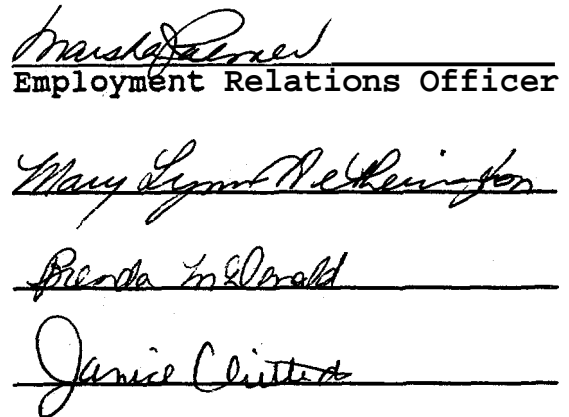 Marsha Palmer
Employment Relations Officer
Mary Lynn Hetherington
Brenda McDonald
Janice